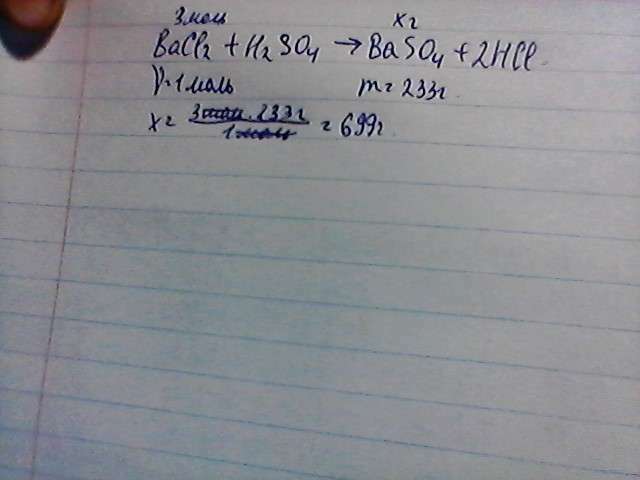 3 моль x г
BaCl2 + H2SO4 → BaSO4 + 2HCl.
ν = 1 моль m = 233 г.
x = 3 моль · 233 г / 1 моль = 699 г.